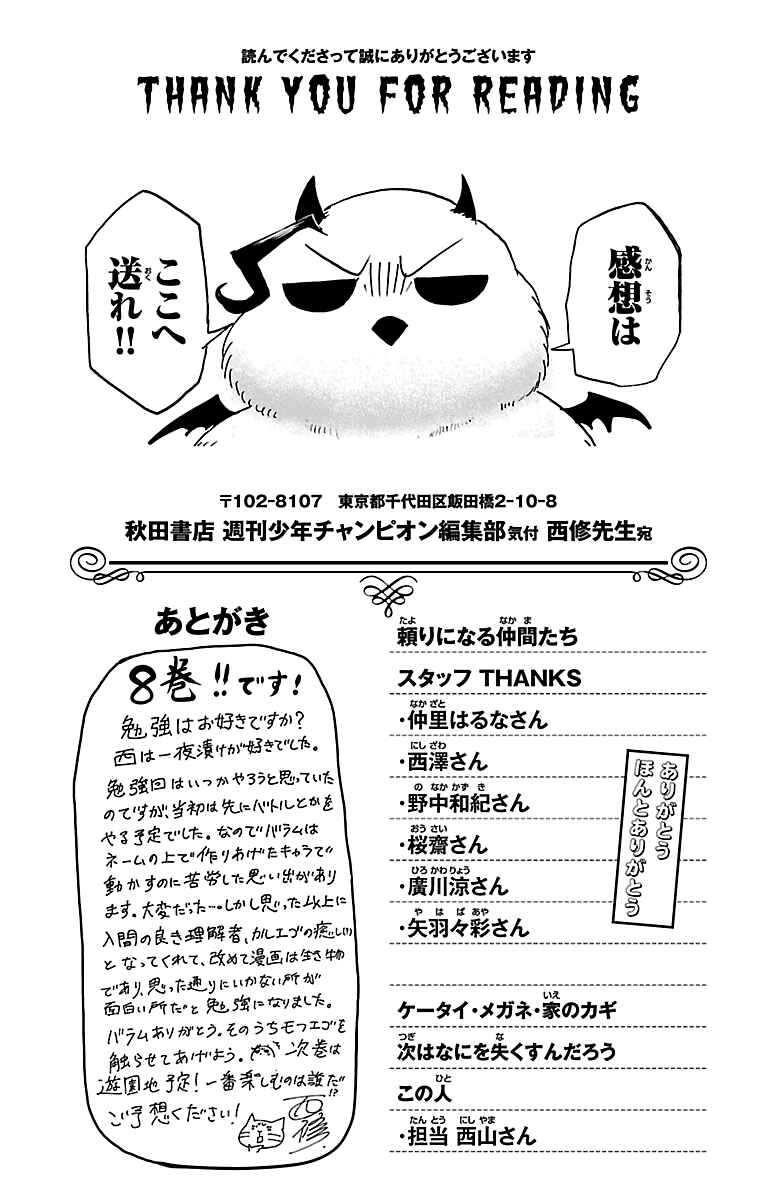 読んでくださって誠にありがとうございます
THANK YOU FOR READING
感想は
ここへ
送れ!!
〒102-8107　東京都千代田区飯田橋2-10-8
秋田書店 週刊少年チャンピオン編集部気付 西修先生宛
あとがき
8巻!!です!
勉強はお好きですか?
西は一夜漬けが好きでした。
勉強回はいつかやろうと思っていた
のですが、当初は先にバトルとかを
やる予定でした。なのでバラムは
ネームの上で作りあげたキャラで
動かすのに苦労した思い出があり
ます。大変だった…。しかし思った以上に
入間の良き理解者、カルエゴの癒し(い)
となってくれて、改めて漫画は生き物
であり、思った通りにいかない所が
面白い所だと勉強になりました。
バラムありがとう。そのうちモフエゴを
触らせてあげよう。次巻は
遊園地予定!一番楽しむのは誰だ!?
ご予想ください!
西修
頼りになる仲間たち
スタッフ THANKS
・仲里はるなさん
・西澤さん
・野中和紀さん
・桜齋さん
・廣川涼さん
・矢羽々彩さん
ありがとう
ほんとありがとう
ケータイ・メガネ・家のカギ
次はなにを失くすんだろう
この人
・担当 西山さん